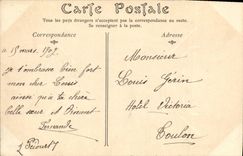 Carte Postale
Tous les pays étrangers n'acceptent pas la correspondance au verso.
Se renseigner à la poste.
Correspondance
Adresse
15 mars 1907
je t'embrasse bien fort
mon cher Louis
ainsi que ta chère
belle sœur et
Fernande
Monsieur
Louis Gérin
Hôtel Victoria
Toulon